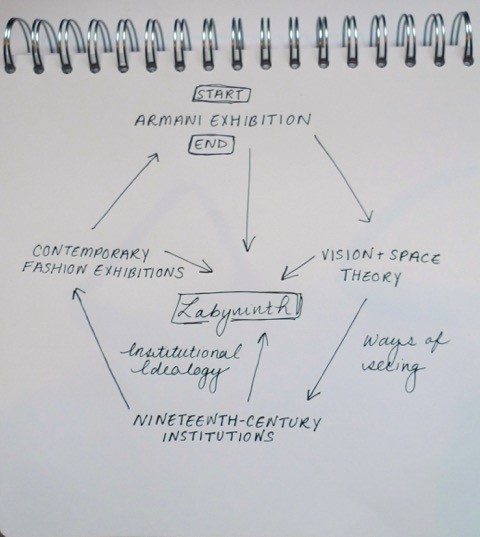 START
ARMANI EXHIBITION
END
CONTEMPORARY
FASHION EXHIBITIONS
VISION + SPACE
THEORY
Labyrinth
Institutional
Idealogy
Ways of
seeing
NINETEENTH-CENTURY
INSTITUTIONS